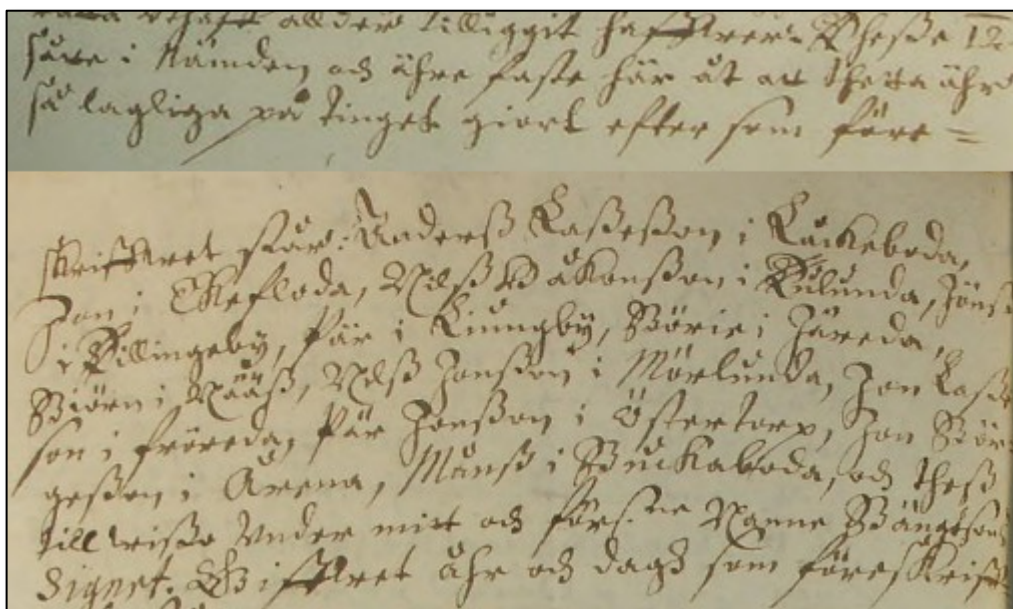 alldeles tilliggit haffver. Thesse 12
såte i Nämden och ähre faste här åt at thetta ähr
så lagliga på tinget giort efter som före =
skriffvet står: Anderß Laßeßon i Luckeboda,
Jon i Ekefloda, Nilß Håkonßon i Kulunda, Jönß
i Killingeby, Pär i Liungby, Börie i Järeda,
Biörn i Nääß, Nilß Jonßon i Mörlunda, Jon Laße
son i fröreda, Pär Jonßon i Östertorp, Jon Bör
geßon i Arena, Månß i Buckaboda, och theß
till wißo under mitt och förs:ne Nanne Bängtsons
Signet. Giffvet Åhr och dagh som föreskrifvet